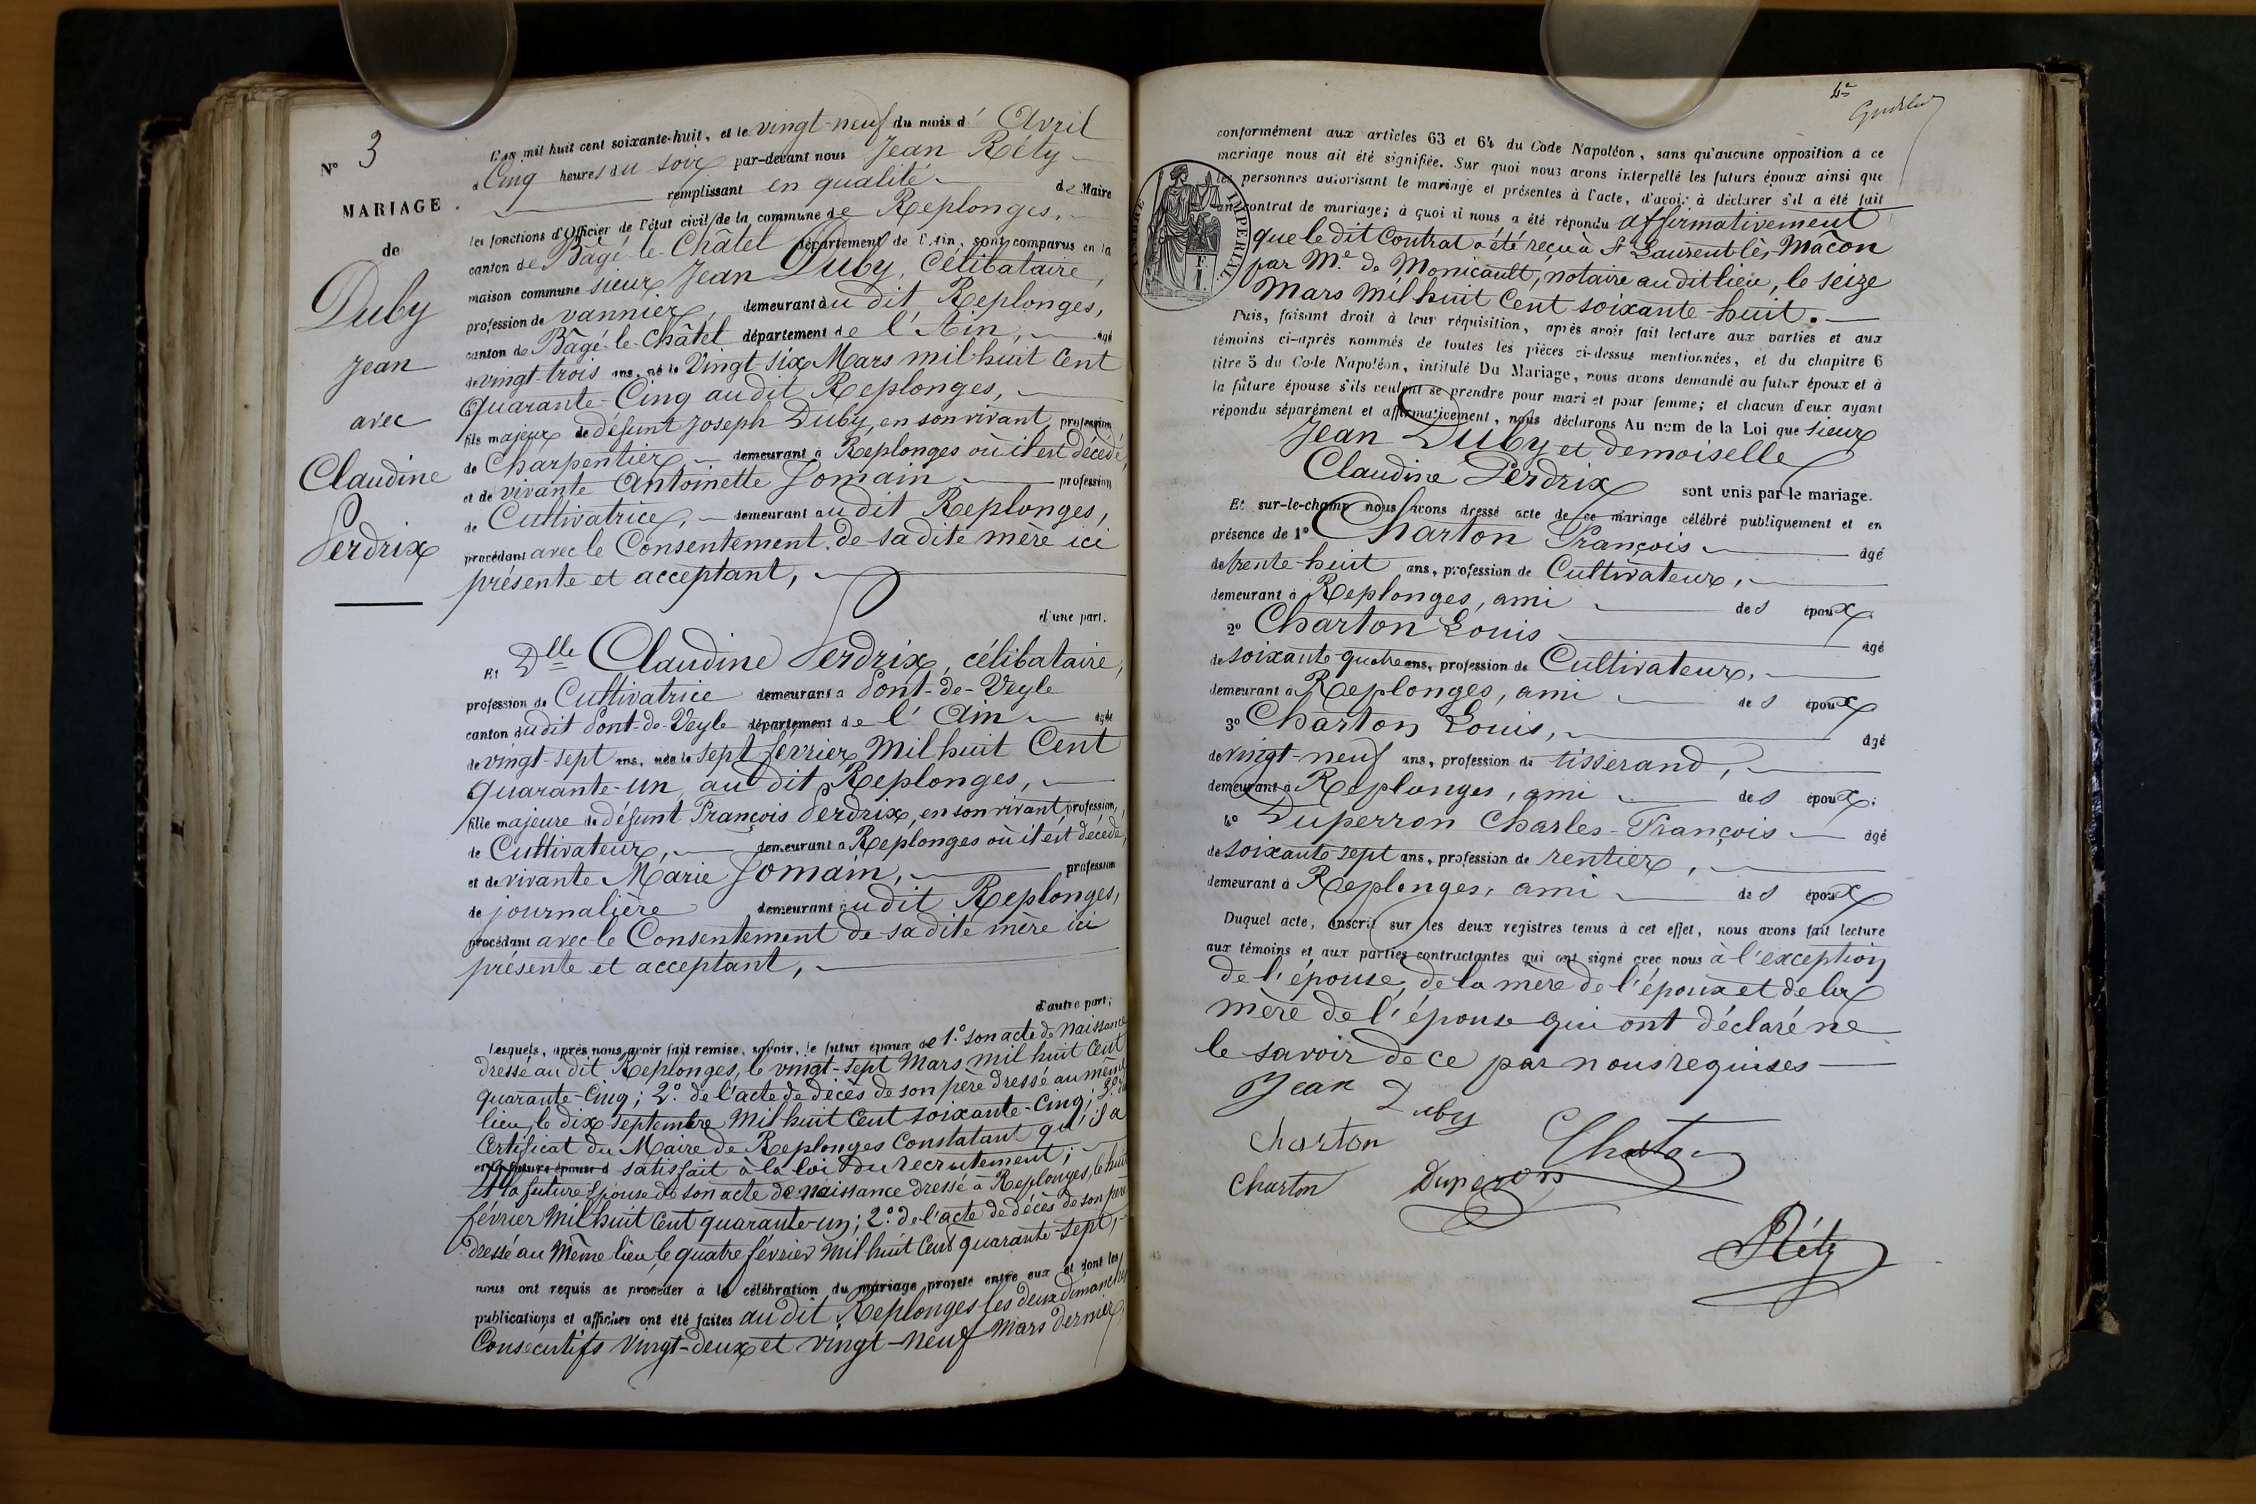 N° 3
MARIAGE
de
Duby
Jean
avec
Claudine
Perdrix
L'an mil huit cent soixante-huit, et le vingt-neuf du mois d' Avril
à Cinq heures du soir par-devant nous Jean Réty
remplissant en qualité de Maire
les fonctions d'Officier de l'état civil de la commune de Replonges,
canton de Bâgé-le-Châtel département de l'Ain, sont comparus en la
maison commune sieur Jean Duby, Célibataire,
profession de vannier, demeurant audit Replonges,
canton de Bâgé-le-Châtel département de l'Ain, agé
de vingt-trois ans, né le Vingt-six Mars mil huit Cent
Quarante-Cinq audit Replonges,
fils majeur de défunt Joseph Duby, en son vivant, profession
de Charpentier demeurant à Replonges où il est décédé,
et de vivante Antoinette Jomain profession
de Cultivatrice, demeurant audit Replonges,
procédant avec le Consentement de sa dite mère ici
présente et acceptant,
d'une part.
Et Dlle Claudine Perdrix, célibataire,
profession de Cultivatrice demeurant à Pont-de-Veyle
canton dudit Pont-de-Veyle département de l'Ain agée
de vingt-sept ans, née le sept février Mil huit Cent
quarante-un, audit Replonges,
fille majeure de défunt François Perdrix, en son vivant, profession,
de Cultivateur, demeurant à Replonges où il est décédé,
et de vivante Marie Jomain, profession
de journalière demeurant audit Replonges,
procédant avec le Consentement de sa dite mère ici
présente et acceptant,
d'autre part;
Lesquels, après nous avoir fait remise, savoir, le futur époux de 1° son acte de naissance
dressé audit Replonges, le vingt-sept Mars mil huit Cent
quarante-Cinq; 2° de l'acte de décès de son père dressé au même
lieu, le dix septembre Mil huit Cent soixante-Cinq; 3° du
Certificat du Maire de Replonges Constatant qu'il a
et la future épouse d satisfait à la loi du recrutement;
Et la future épouse de son acte de naissance dressé à Replonges, le huit
février Mil huit Cent quarante-un; 2° de l'acte de décès de son père
dressé au Même lieu, le quatre février Mil huit Cent quarante-sept,
nous ont requis de procéder à la célébration du mariage projeté entre eux et dont les
publications et affiches ont été faites audit Replonges les deux dimanches
Consécutifs Vingt-deux et vingt-neuf Mars dernier,
conformément aux articles 63 et 64 du Code Napoléon, sans qu'aucune opposition à ce
mariage nous ait été signifiée. Sur quoi nous avons interpellé les futurs époux ainsi que
les personnes autorisant le mariage et présentes à l'acte, d'avoir à déclarer s'il a été fait
un contrat de mariage; à quoi il nous a été répondu affirmativement
que le dit Contrat a été reçu à St Laurent-lès-Mâcon
par Me de Monicault, notaire audit lieu, le seize
Mars Mil huit Cent soixante-huit.
Puis, faisant droit à leur réquisition, après avoir fait lecture aux parties et aux
témoins ci-après nommés de toutes les pièces ci-dessus mentionnées, et du chapitre 6
titre 5 du Code Napoléon, intitulé Du Mariage, nous avons demandé au futur époux et à
la future épouse s'ils veulent se prendre pour mari et pour femme; et chacun d'eux ayant
répondu séparément et affirmativement, nous déclarons Au nom de la Loi que sieur
Jean Duby et demoiselle
Claudine Perdrix sont unis par le mariage.
Et sur-le-champ nous avons dressé acte de ce mariage célébré publiquement et en
présence de 1° Charton François agé
de trente-huit ans, profession de Cultivateur,
demeurant à Replonges, ami des époux.
2° Charton Louis agé
de soixante-quatre ans, profession de Cultivateur,
demeurant à Replonges, ami des époux
3° Charton Louis, agé
de vingt-neuf ans, profession de tisserand,
demeurant à Replonges, ami des époux;
4° Duperron Charles-François agé
de soixante-sept ans, profession de rentier,
demeurant à Replonges, ami des époux
Duquel acte, inscrit sur les deux registres tenus à cet effet, nous avons fait lecture
aux témoins et aux parties contractantes qui ont signé avec nous à l'exception
de l'épouse, de la mère de l'époux et de la
mère de l'épouse qui ont déclaré ne
le savoir de ce par nous requises
Jean Duby
Charton
Charton
Charton
Duperron
Réty
IMPERIAL